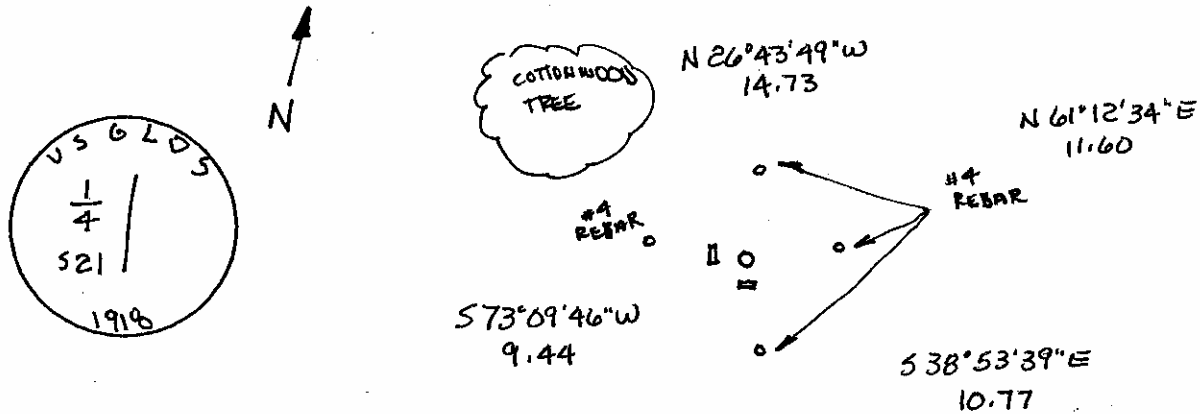 U S G L O S
1
4
S21
1918
N
COTTONWOOD
TREE
N 26°43'49"W
14.73
N 61°12'34"E
11.60
#4
REBAR
#4
REBAR
S 73°09'46"W
9.44
S 38°53'39"E
10.77